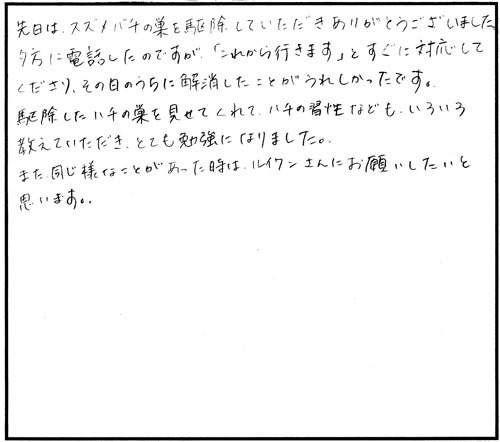 先日は、スズメバチの巣を駆除していただきありがとうございました
夕方に電話したのですが、「これから行きます」とすぐに対応して
くださり、その日のうちに解消したことがうれしかったです。
駆除したハチの巣を見せてくれて、ハチの習性なども、いろいろ
教えていただき、とても勉強になりました。
また、同じ様なことがあった時は、ルイワンさんにお願いしたいと
思います。